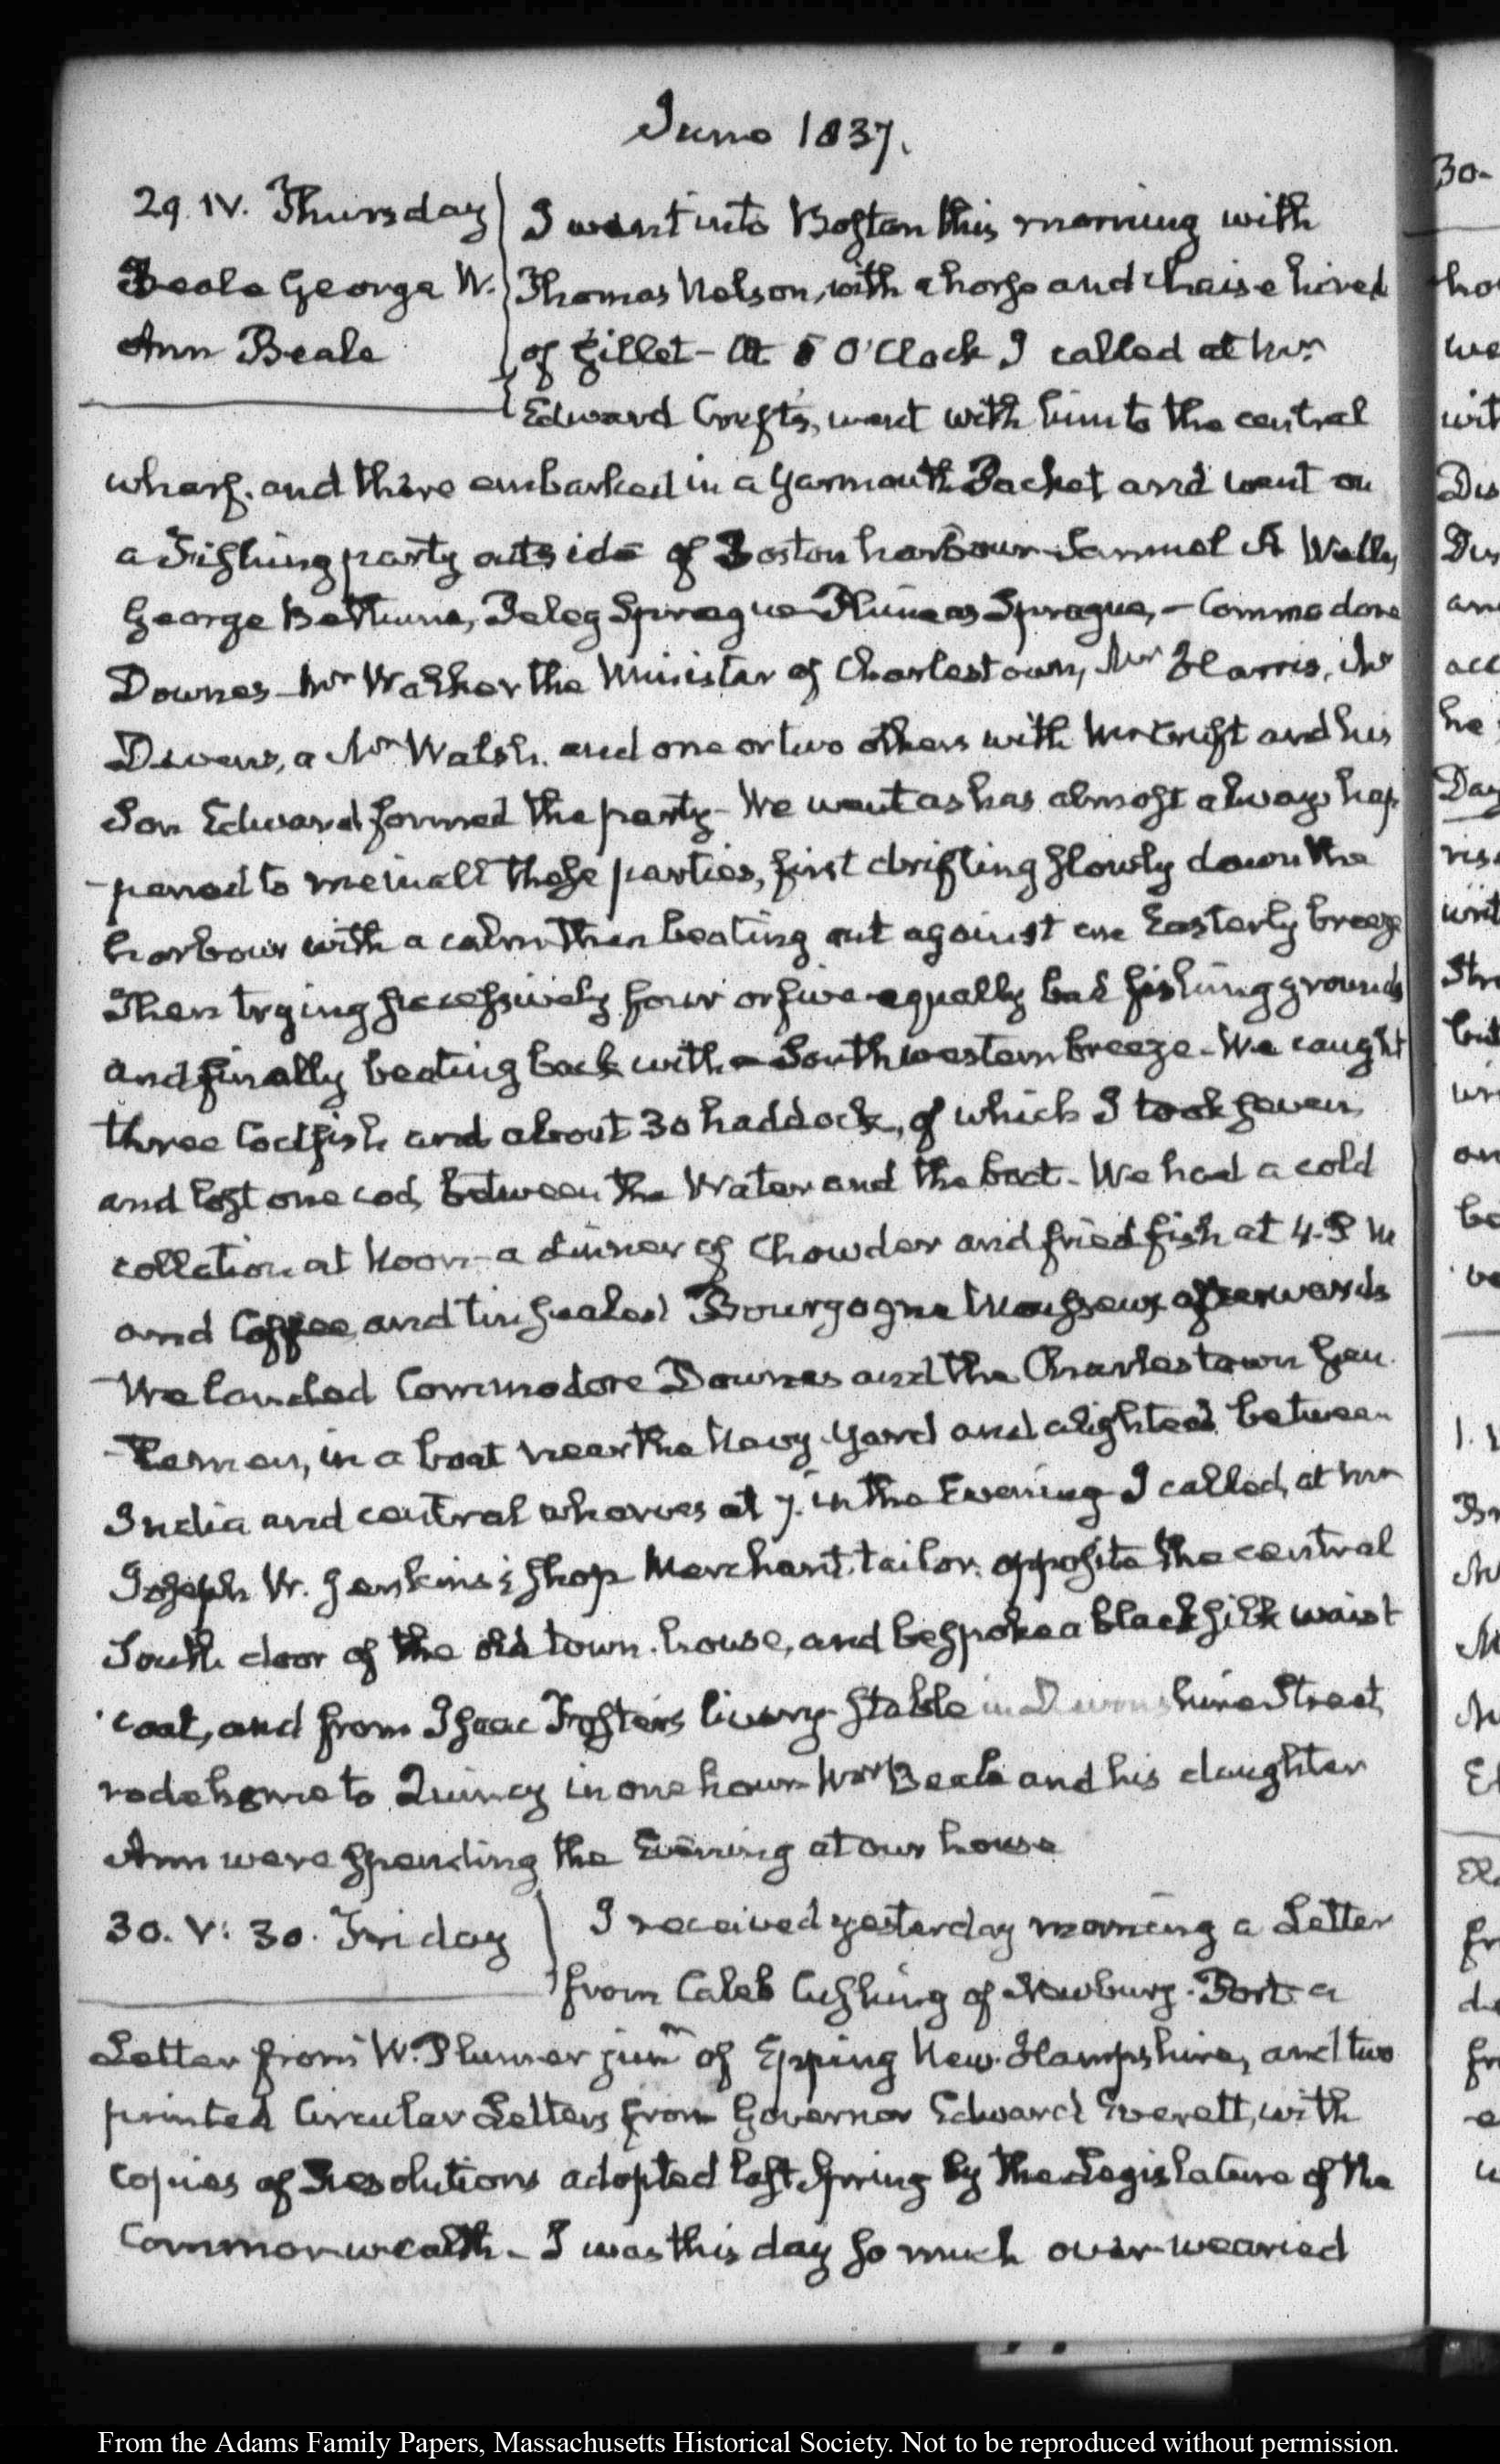 June 1837.
29. IV. Thursday
Beale George W.
Ann Beale
I went into Boston this morning with
Thomas Nelson, with a horse and chaise hired
of Gillet - At 8 O'Clock I called at Mr
Edward Cruft's, went with him to the central
wharf. and there embarked in a Yarmouth Packet and went on
a Fishing party outside of Boston harbour Samuel A Wells,
George Bethune, Peleg Sprague Phineas Sprague, - Commodore
Downes - Mr Walker the Minister of Charlestown, Mr Harris, Mr
Devens, a Mr Walsh. and one or two others with Mr Cruft and his
Son Edward formed the party - We went as has almost always hap
-pened to me in all these parties, first drifting slowly down the
harbour with a calm then beating out against an Easterly breeze
Then trying successively four or five equally bad fishing grounds
and finally beating back with a South western breeze - We caught
three Codfish and about 30 haddock, of which I took seven
and lost one cod, between the Water and the boat - We had a cold
collation at Noon - a dinner of Chowder and fried fish at 4. P M
and Coffee and tin sealed Bourgogne Mousseux afterwards
- We landed Commodore Downes and the Charlestown Gen
-tlemen, in a boat near the Navy Yard and alighted between
India and central wharves at 7. in the Evening I called, at Mr
Joseph W. Jenkins's shop Merchant tailor. opposite the central
South door of the old town. house, and bespoke a black silk waist
coat, and from Isaac Foster's livery Stable in Devonshire Street,
rode home to Quincy in one hour - Mr Beale and his daughter
Ann were spending the Evening at our house
30. V: 30. Friday
I received yesterday morning a Letter
from Caleb Cushing of Newbury-Port a
Letter from W. Plumer junr of Epping New-Hampshire, and two
printed Circular Letters from Governor Edward Everett, with
Copies of Resolutions adopted last Spring by the Legislature of the
Commonwealth - I was this day so much over-wearied
From the Adams Family Papers, Massachusetts Historical Society. Not to be reproduced without permission.